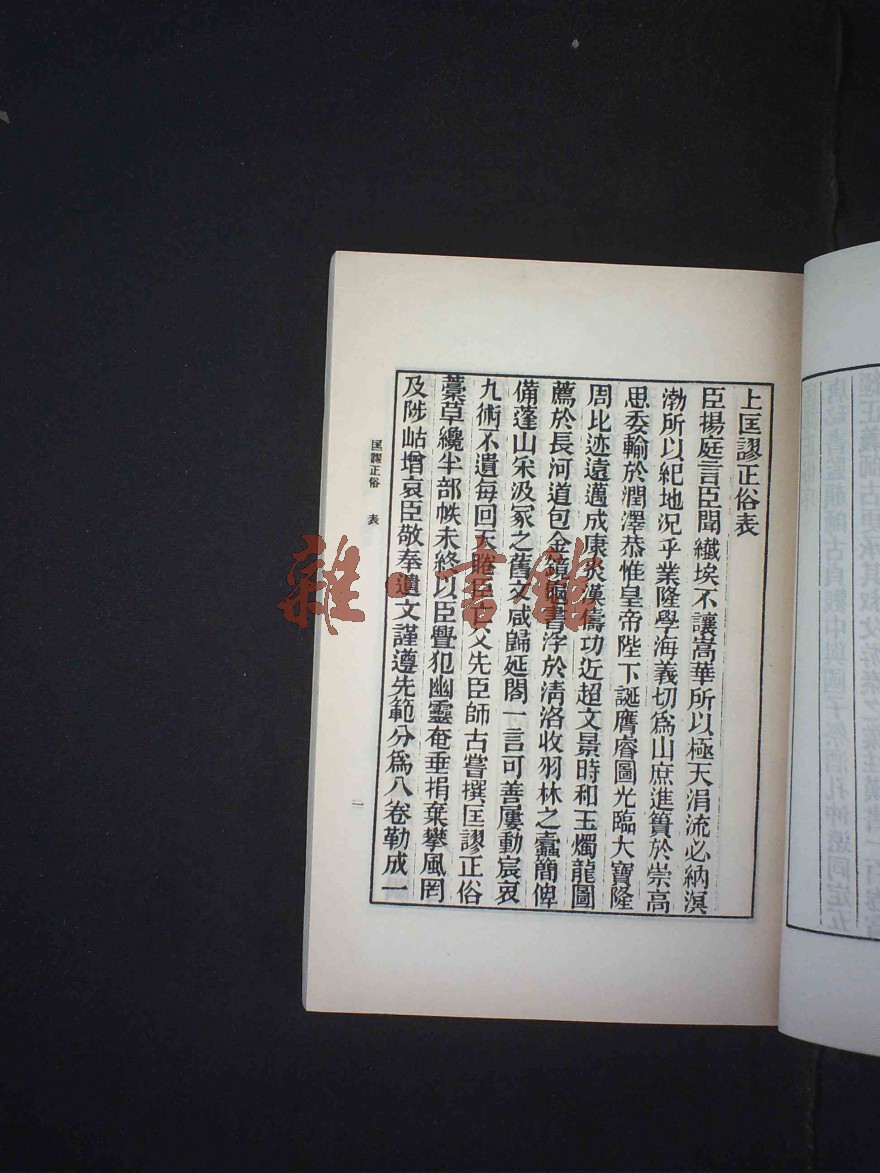 上匡謬正俗表
臣揚庭言臣聞纎埃不讓嵩華所以極天涓流必納溟
渤所以紀地況乎業隆學海義切爲山庶進簣於崇高
思委輸於潤澤恭惟皇帝陛下誕膺睿圖光臨大寶隆
周比迹遠邁成康炎漢儔功近超文景時和玉燭龍圖
薦於長河道包金鏡龜書浮於淸洛收羽林之蠧簡俾
備蓬山采汲冢之舊文咸歸延閣一言可善屢動宸衷
九術不遺每回天睠臣亡父先臣師古嘗撰匡謬正俗
藁草纔半部帙未終以臣舋犯幽靈奄垂捐棄攀風罔
及陟岵增哀臣敬奉遺文謹遵先範分爲八卷勒成一
匡謬正俗 表
一
雜·書館